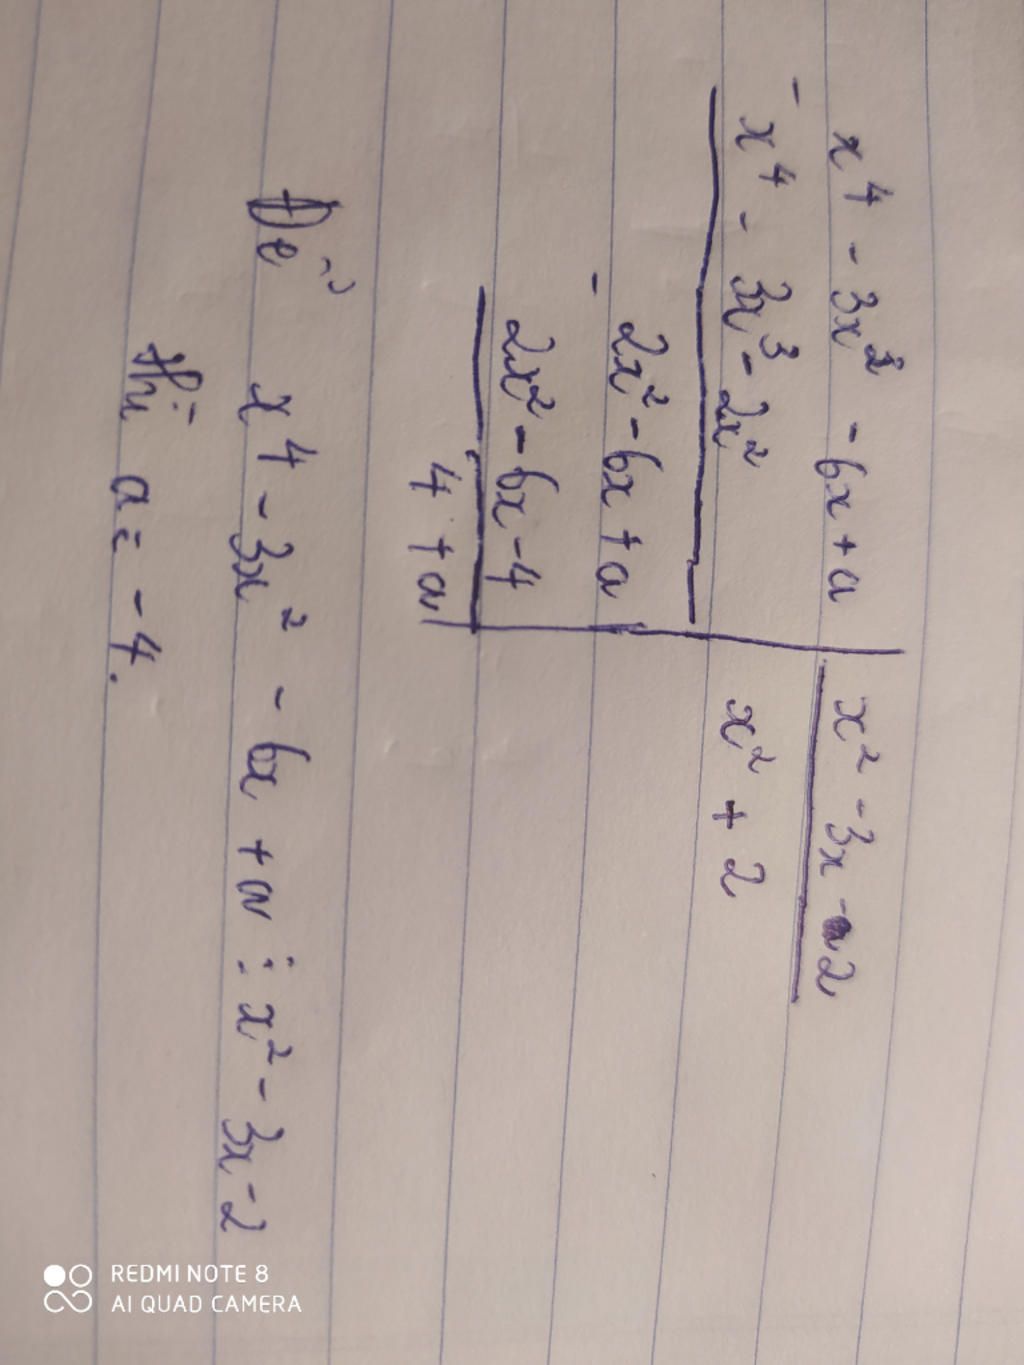 x⁴ - 3x² - 6x + a | x² - 3x - 2
- x⁴ - 3x³ - 2x² | x² + 2
- 2x² - 6x + a
2x² - 6x - 4
4 + a
Để x⁴ - 3x² - 6x + a ⋮ x² - 3x - 2
thì a = -4.
REDMI NOTE 8
AI QUAD CAMERA